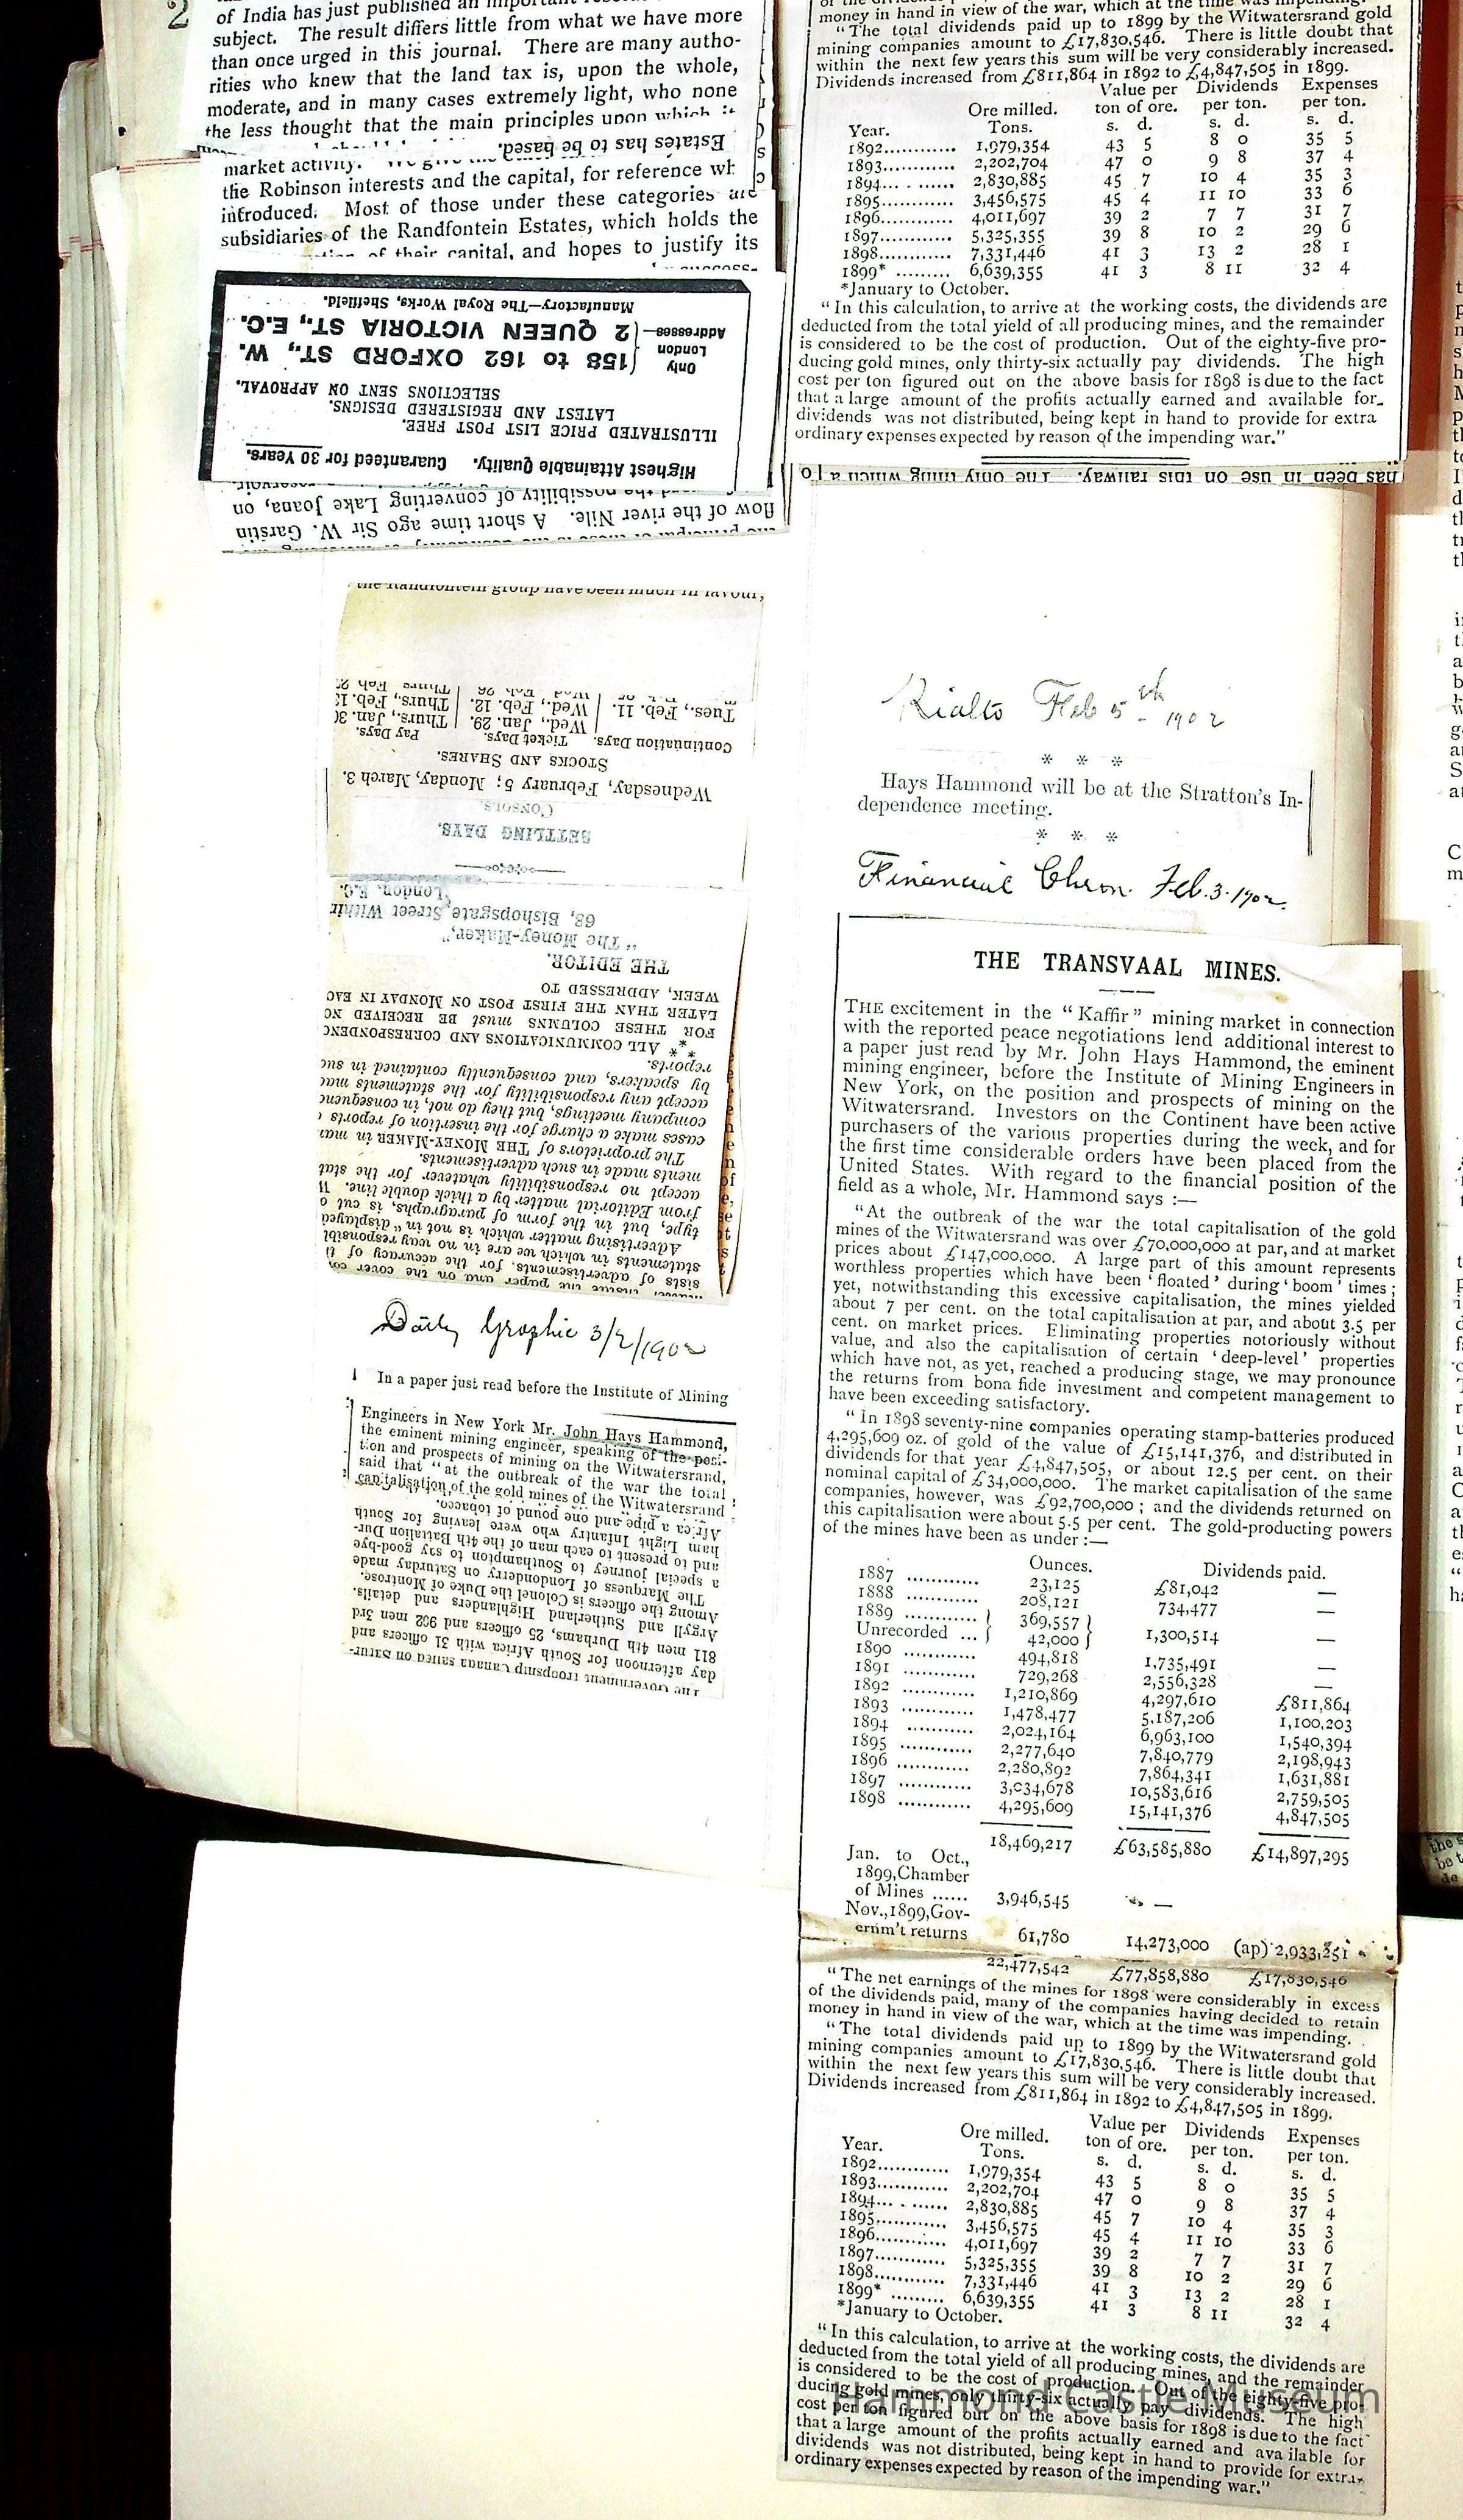 2
of India has just published an important
subject. The result differs little from what we have more
than once urged in this journal. There are many autho-
rities who knew that the land tax is, upon the whole,
moderate, and in many cases extremely light, who none
the less thought that the main principles upon which it
Estates has to be based.
market activity. We give
the Robinson interests and the capital, for reference
introduced. Most of those under these categories are
subsidiaries of the Randfontein Estates, which holds the
of their capital, and hopes to justify its
Highest Attainable Quality. Guaranteed for 30 Years.
ILLUSTRATED PRICE LIST POST FREE.
LATEST AND REGISTERED DESIGNS.
SELECTIONS SENT ON APPROVAL.
Only London Addresses—
158 to 162 OXFORD ST., W.
2 QUEEN VICTORIA ST., E.C.
Manufactory—The Royal Works, Sheffield.
flow of the river Nile. A short time ago Sir W. Garstin
the possibility of converting Lake Joana, on
the Randfontein group have been much in favour,
sists of advertisements, for the accuracy of
statements in which we are in no way responsibl
Advertising matter which is not in "displayed
type, but in the form of paragraphs, is cut o
from Editorial matter by a thick double line. W
accept no responsibility whatever for the stat
ments made in such advertisements.
The proprietors of THE MONEY-MAKER in man
cases make a charge for the insertion of reports
company meetings, but they do not, in consequenc
accept any responsibility for the statements mad
by speakers, and consequently contained in suc
reports.
*** ALL COMMUNICATIONS AND CORRESPONDENC
FOR THESE COLUMNS must BE RECEIVED NO
LATER THAN THE FIRST POST ON MONDAY IN EAC
WEEK, ADDRESSED TO
THE EDITOR,
"The Money-Maker,"
68, Bishopsgate Street Within
London, E.C.
SETTLING DAYS.
CONSOLS.
Wednesday, February 5; Monday, March 3.
STOCKS AND SHARES.
Continuation Days. Ticket Days. Pay Days.
Wed., Jan. 29. Thurs., Jan. 30
Tues., Feb. 11. Wed., Feb. 12. Thurs., Feb. 13
Daily Graphic 3/2/1902
In a paper just read before the Institute of Mining
Engineers in New York Mr. John Hays Hammond,
the eminent mining engineer, speaking of the posi-
tion and prospects of mining on the Witwatersrand,
said that "at the outbreak of the war the total
capitalisation of the gold mines of the Witwatersrand
The Government troopship Canada sailed on Satur-
day afternoon for South Africa with 31 officers and
811 men 4th Durhams, 25 officers and 902 men 3rd
Argyll and Sutherland Highlanders and details.
Among the officers is Colonel the Duke of Montrose.
The Marquess of Londonderry on Saturday made
a special journey to Southampton to say good-bye
and to present to each man of the 4th Battalion Dur-
ham Light Infantry who were leaving for South
Africa a pipe and one pound of tobacco.
money in hand in view of the war, which at the time was impending.
"The total dividends paid up to 1899 by the Witwatersrand gold
mining companies amount to £17,830,546. There is little doubt that
within the next few years this sum will be very considerably increased.
Dividends increased from £811,864 in 1892 to £4,847,505 in 1899.
Year. Ore milled. Tons. Value per ton of ore. s. d. Dividends per ton. s. d. Expenses per ton. s. d.
1892............ 1,979,354 43 5 8 0 35 5
1893............ 2,202,704 47 0 9 8 37 4
1894............ 2,830,885 45 7 10 4 35 3
1895............ 3,456,575 45 4 11 10 33 6
1896............ 4,011,697 39 2 7 7 31 7
1897............ 5,325,355 39 8 10 2 29 6
1898............ 7,331,446 41 3 13 2 28 1
1899* ......... 6,639,355 41 3 8 11 32 4
*January to October.
"In this calculation, to arrive at the working costs, the dividends are
deducted from the total yield of all producing mines, and the remainder
is considered to be the cost of production. Out of the eighty-five pro-
ducing gold mines, only thirty-six actually pay dividends. The high
cost per ton figured out on the above basis for 1898 is due to the fact
that a large amount of the profits actually earned and available for
dividends was not distributed, being kept in hand to provide for extra
ordinary expenses expected by reason of the impending war."
has been in use on this railway. The only thing which a
Rialto Feb 5th 1902
* * *
Hays Hammond will be at the Stratton's In-
dependence meeting.
* * *
Financial Chron. Feb. 3. 1902.
THE TRANSVAAL MINES.
THE excitement in the "Kaffir" mining market in connection
with the reported peace negotiations lend additional interest to
a paper just read by Mr. John Hays Hammond, the eminent
mining engineer, before the Institute of Mining Engineers in
New York, on the position and prospects of mining on the
Witwatersrand. Investors on the Continent have been active
purchasers of the various properties during the week, and for
the first time considerable orders have been placed from the
United States. With regard to the financial position of the
field as a whole, Mr. Hammond says :—
"At the outbreak of the war the total capitalisation of the gold
mines of the Witwatersrand was over £70,000,000 at par, and at market
prices about £147,000,000. A large part of this amount represents
worthless properties which have been 'floated' during 'boom' times;
yet, notwithstanding this excessive capitalisation, the mines yielded
about 7 per cent. on the total capitalisation at par, and about 3.5 per
cent. on market prices. Eliminating properties notoriously without
value, and also the capitalisation of certain 'deep-level' properties
which have not, as yet, reached a producing stage, we may pronounce
the returns from bona fide investment and competent management to
have been exceeding satisfactory.
"In 1898 seventy-nine companies operating stamp-batteries produced
4,295,609 oz. of gold of the value of £15,141,376, and distributed in
dividends for that year £4,847,505, or about 12.5 per cent. on their
nominal capital of £34,000,000. The market capitalisation of the same
companies, however, was £92,700,000; and the dividends returned on
this capitalisation were about 5.5 per cent. The gold-producting powers
of the mines have been as under :—
Ounces. Dividends paid.
1887 ............ 23,125 £81,042 —
1888 ............ 208,121 734,477 —
1889 ............ } 369,557 }
Unrecorded ... } 42,000 } 1,300,514 —
1890 ............ 494,818 1,735,491 —
1891 ............ 729,268 2,556,328 —
1892 ............ 1,210,869 4,297,610 £811,864
1893 ............ 1,478,477 5,187,206 1,100,203
1894 ............ 2,024,164 6,963,100 1,540,394
1895 ............ 2,277,640 7,840,779 2,198,943
1896 ............ 2,280,892 7,864,341 1,631,881
1897 ............ 3,034,678 10,583,616 2,759,505
1898 ............ 4,295,609 15,141,376 4,847,505
18,469,217 £63,585,880 £14,897,295
Jan. to Oct.,
1899, Chamber
of Mines ...... 3,946,545 —
Nov., 1899, Gov-
ernm't returns 61,780 14,273,000 (ap) 2,933,251
22,477,542 £77,858,880 £17,830,546
"The net earnings of the mines for 1898 were considerably in excess
of the dividends paid, many of the companies having decided to retain
money in hand in view of the war, which at the time was impending.
"The total dividends paid up to 1899 by the Witwatersrand gold
mining companies amount to £17,830,546. There is little doubt that
within the next few years this sum will be very considerably increased.
Dividends increased from £811,864 in 1892 to £4,847,505 in 1899.
Year. Ore milled. Tons. Value per ton of ore. s. d. Dividends per ton. s. d. Expenses per ton. s. d.
1892............ 1,979,354 43 5 8 0 35 5
1893............ 2,202,704 47 0 9 8 37 4
1894............ 2,830,885 45 7 10 4 35 3
1895............ 3,456,575 45 4 11 10 33 6
1896............ 4,011,697 39 2 7 7 31 7
1897............ 5,325,355 39 8 10 2 29 6
1898............ 7,331,446 41 3 13 2 28 1
1899* ......... 6,639,355 41 3 8 11 32 4
*January to October.
"In this calculation, to arrive at the working costs, the dividends are
deducted from the total yield of all producing mines, and the remainder
is considered to be the cost of production. Out of the eighty-five pro-
ducing gold mines, only thirty-six actually pay dividends. The high
cost per ton figured out on the above basis for 1898 is due to the fact
that a large amount of the profits actually earned and available for
dividends was not distributed, being kept in hand to provide for extra-
ordinary expenses expected by reason of the impending war."
Hammond Castle Museum